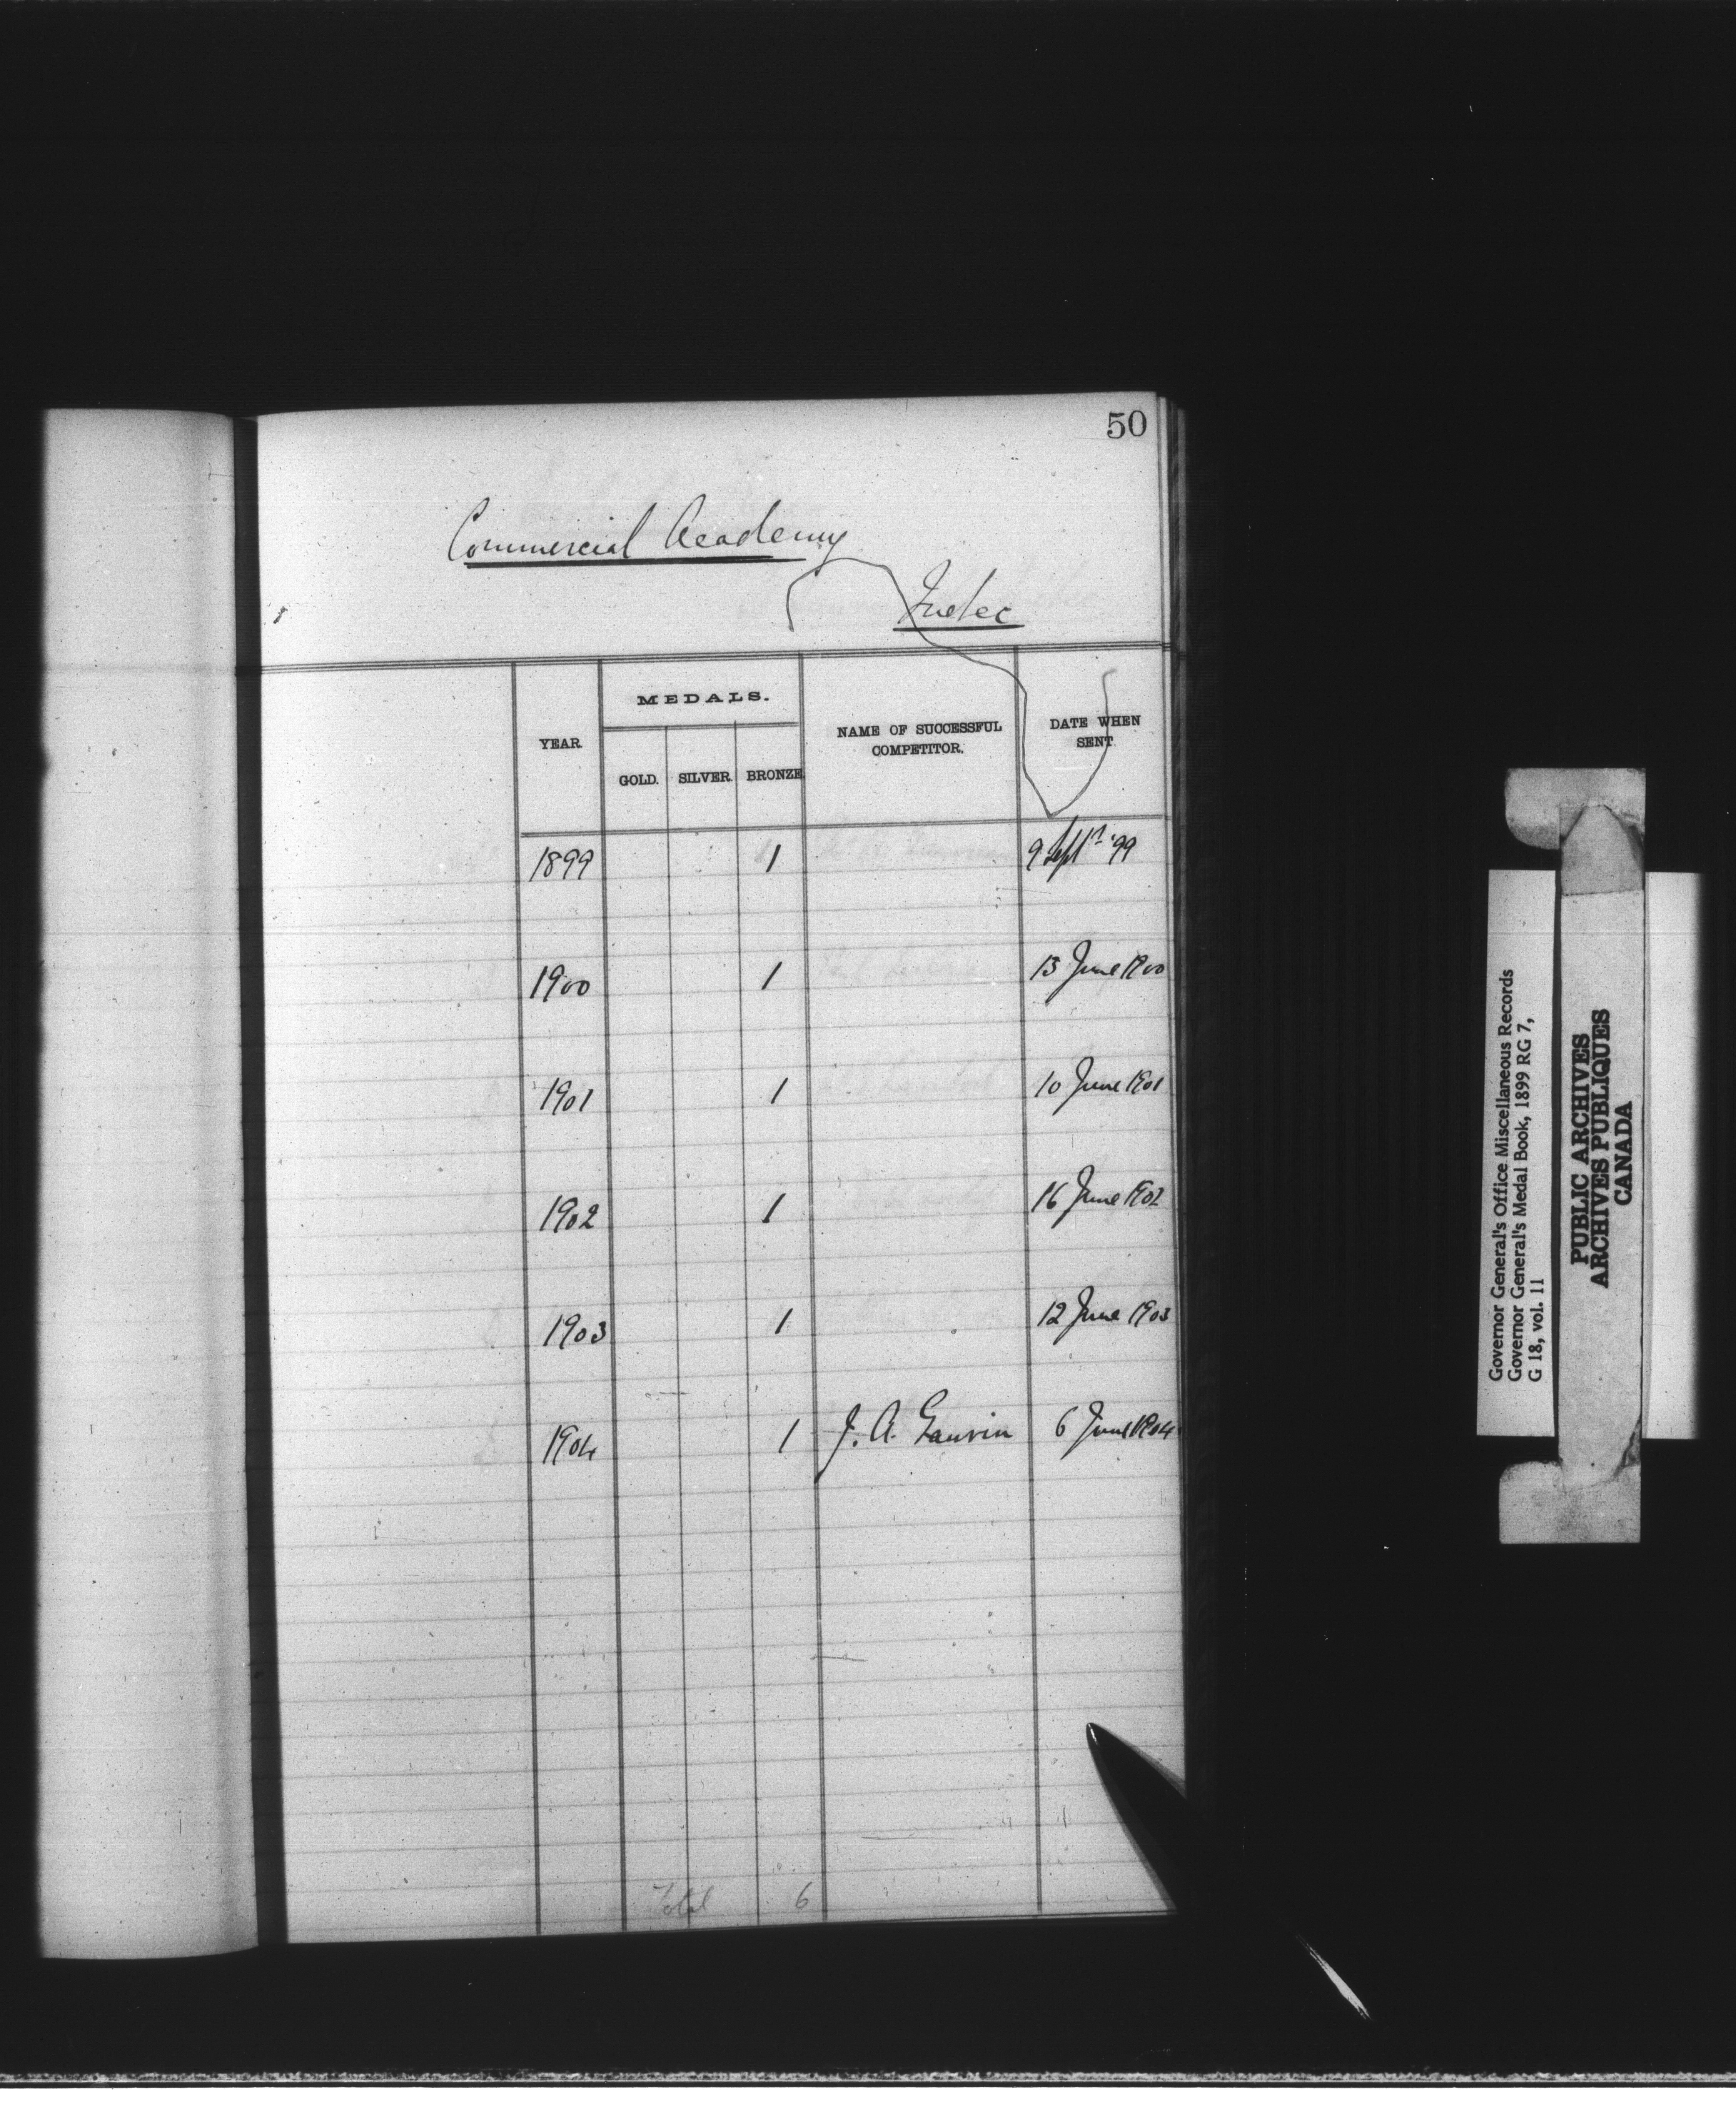 50
Commercial Academy
Quebec
YEAR. MEDALS. NAME OF SUCCESSFUL COMPETITOR. DATE WHEN SENT.
GOLD. SILVER. BRONZE.
1899 1 9 Sept '99
1900 1 13 June 1900
1901 1 10 June 1901
1902 1 16 June 1902
1903 1 12 June 1903
1904 1 J. A. Gauvin 6 June 1904
Total 6
Governor General's Office Miscellaneous Records
Governor General's Medal Book, 1899 RG 7,
G 18, vol. 11
PUBLIC ARCHIVES
ARCHIVES PUBLIQUES
CANADA